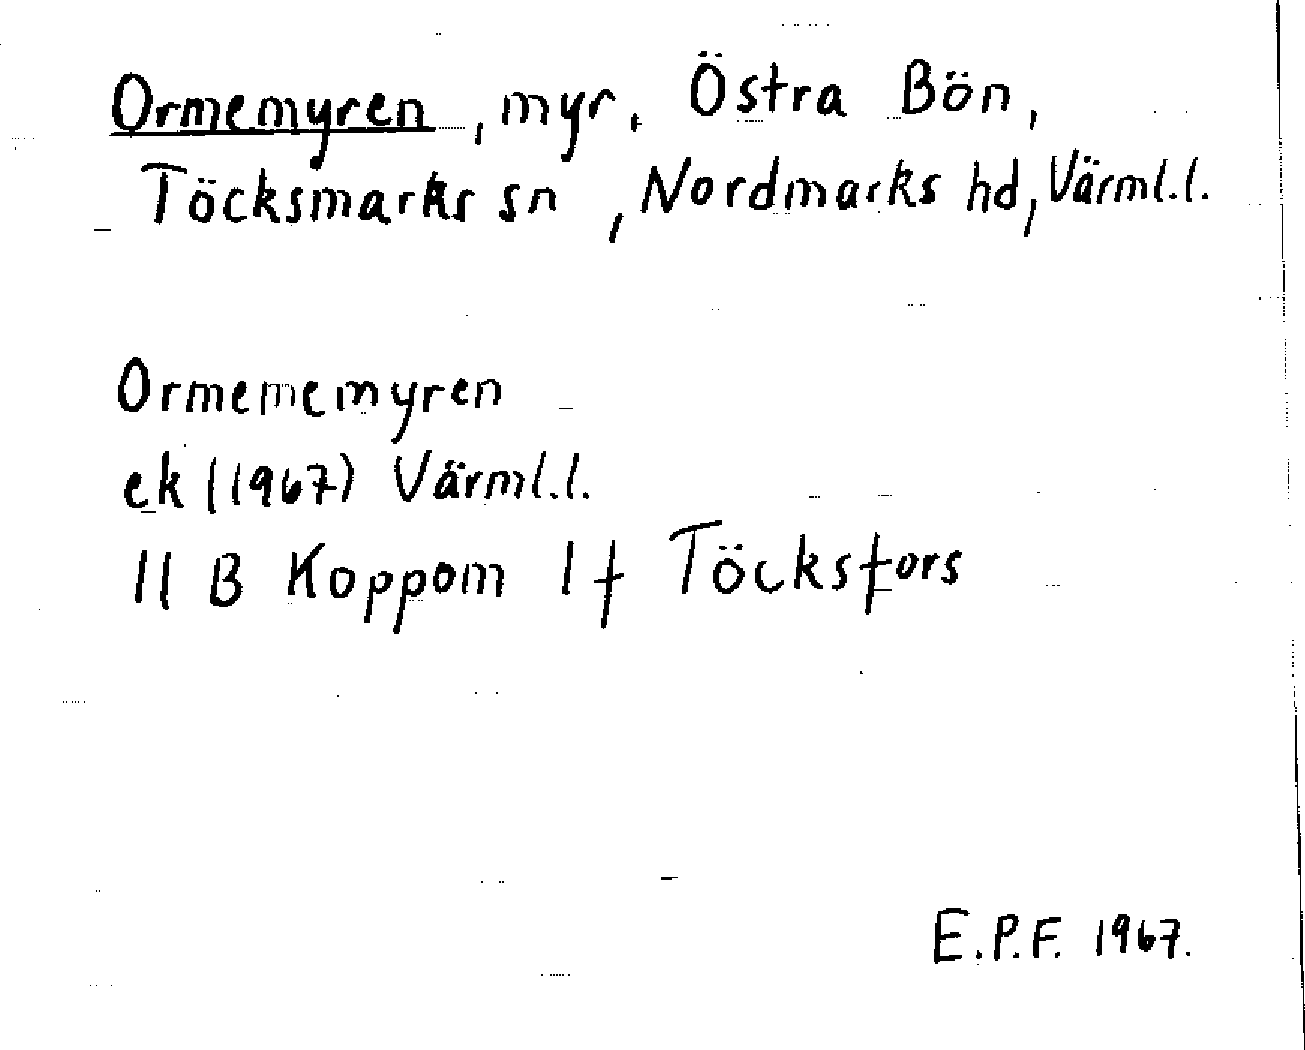 Ormemyren, myr, Östra Bön,
Töcksmarks sn, Nordmarks hd, Värml.l.
Ormememyren
ek (1967) Värml.l.
11 B Koppom 1 f Töcksfors
E.P.F. 1967.